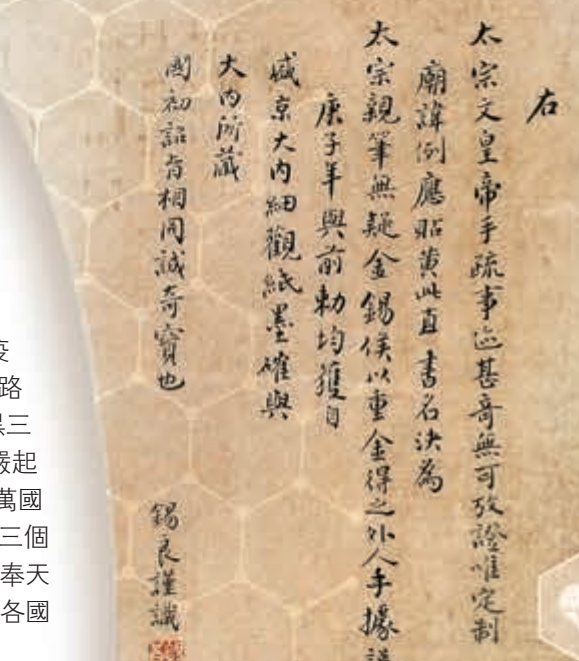 右
太宗文皇帝手疏事迹甚奇無可攷證唯定制
廟諱例應貼黃此直書名決為
太宗親筆無疑金錫侯以重金得之外人手據
庚子年與前勅均獲自
盛京大內細觀紙墨確與
大內所藏
國初詔旨相同誠奇寶也
錫良謹識
疫
路
三
嚴起
萬國
三個
奉天
各國